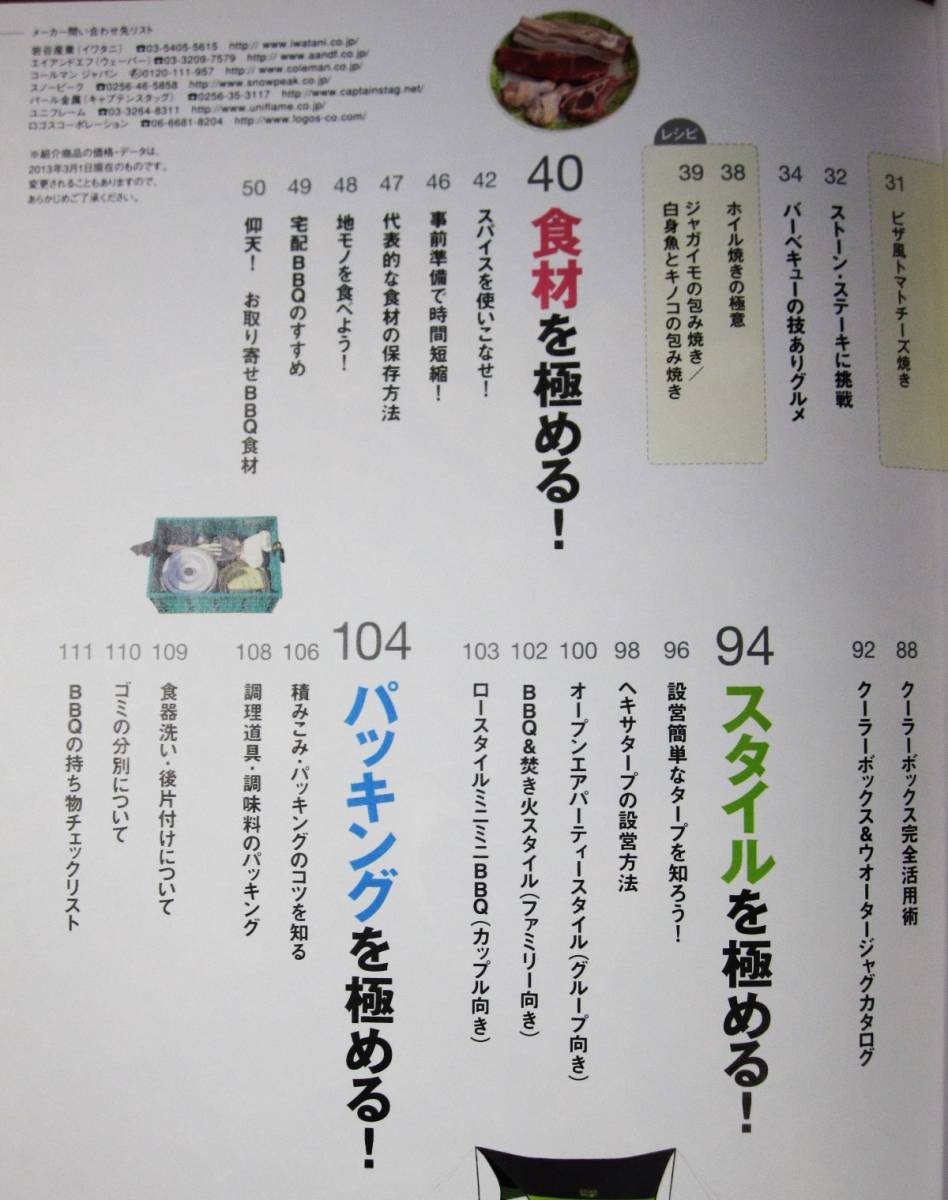 メーカー問い合わせ先リスト
岩谷産業(イワタニ) ☎03-5405-5615 http:// www.iwatani.co.jp/
エイアンドエフ(ウェーバー) ☎03-3209-7579 http:// www.aandf.co.jp/
コールマン ジャパン 0120-111-957 http:// www.coleman.co.jp/
スノーピーク ☎0256-46-5858 http://www.snowpeak.co.jp/
パール金属(キャプテンスタッグ) ☎0256-35-3117 http://www.captainstag.net/
ユニフレーム ☎03-3264-8311 http://www.uniflame.co.jp/
ロゴスコーポレーション ☎06-6681-8204 http://www.logos-co.com/
※紹介商品の価格・データは、
2013年3月1日現在のものです。
変更されることもありますので、
あらかじめご了承ください。
31 ピザ風トマトチーズ焼き
32 ストーン・ステーキに挑戦
34 バーベキューの技ありグルメ
レシピ
38 ホイル焼きの極意
39 ジャガイモの包み焼き/
白身魚とキノコの包み焼き
40 食材を極める!
42 スパイスを使いこなせ!
46 事前準備で時間短縮!
47 代表的な食材の保存方法
48 地モノを食べよう!
49 宅配BBQのすすめ
50 仰天! お取り寄せBBQ食材
88 クーラーボックス完全活用術
92 クーラーボックス&ウオータージャグカタログ
94 スタイルを極める!
96 設営簡単なタープを知ろう!
98 ヘキサタープの設営方法
100 オープンエアパーティースタイル(グループ向き)
102 BBQ&焚き火スタイル(ファミリー向き)
103 ロースタイルミニミニBBQ(カップル向き)
104 パッキングを極める!
106 積みこみ・パッキングのコツを知る
108 調理道具・調味料のパッキング
109 食器洗い・後片付けについて
110 ゴミの分別について
111 BBQの持ち物チェックリスト